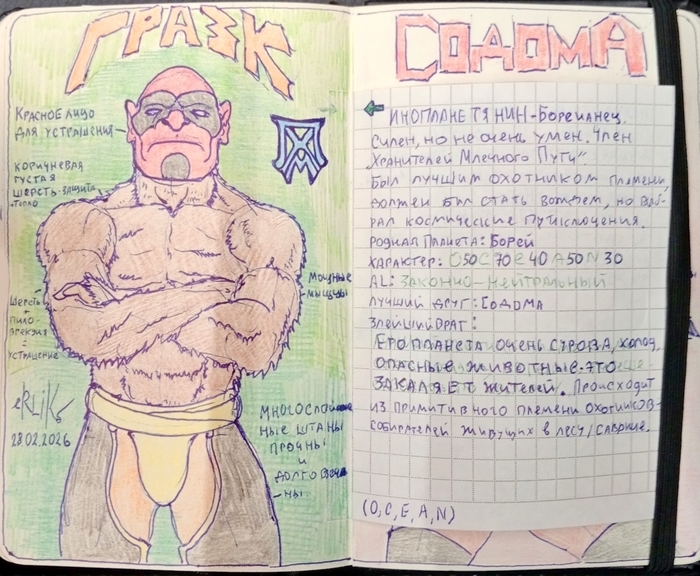 ГРАЗК
КРАСНОЕ ЛИЦО
ДЛЯ УСТРАШЕНИЯ
КОРИЧНЕВАЯ
ГУСТАЯ
ШЕРСТЬ-ЗАЩИТА
+ТЕПЛО
МОЩНЫЕ
МЫШЦЫ
ШЕРСТЬ
+
ПИЛО-
ЭРЕКЦИЯ
=
УСТРАШЕНИЕ
eRLiK
28.02.2026
МНОГОСЛОЙ
НЫЕ ШТАНЫ
ПРОЧНЫ
И
ДОЛГОВЕЧ
НЫ
СОДОМА
ИНОПЛАНЕТЯНИН-БОРЕЙАНЕЦ.
СИЛЕН, НО НЕ ОЧЕНЬ УМЕН. ЧЛЕН
„ХРАНИТЕЛЕЙ МЛЕЧНОГО ПУТИ"
БЫЛ ЛУЧШИМ ОХОТНИКОМ ПЛЕМЕНИ,
ДОЛЖЕН БЫЛ СТАТЬ ВОЖДЕМ, НО ВЫБ-
РАЛ КОСМИЧЕСКИЕ ПРИКЛЮЧЕНИЯ.
РОДНАЯ ПЛАНЕТА: БОРЕЙ
ХАРАКТЕР: O50 C70 E40 A50 N30
AL: ЗАКОННО-НЕЙТРАЛЬНЫЙ
ЛУЧШИЙ ДРУГ: СОДОМА
ЗЛЕЙШИЙ ВРАГ:
ЕГО ПЛАНЕТА ОЧЕНЬ СУРОВА, ХОЛОД,
ОПАСНЫЕ ЖИВОТНЫЕ-ЭТО
ЗАКАЛЯЕТ ЖИТЕЛЕЙ. ПРОИСХОДИТ
ИЗ ПРИМИТИВНОГО ПЛЕМЕНИ ОХОТНИКОВ-
СОБИРАТЕЛЕЙ ЖИВУЩИХ В ЛЕСУ/САВАННЕ.
(O, C, E, A, N)